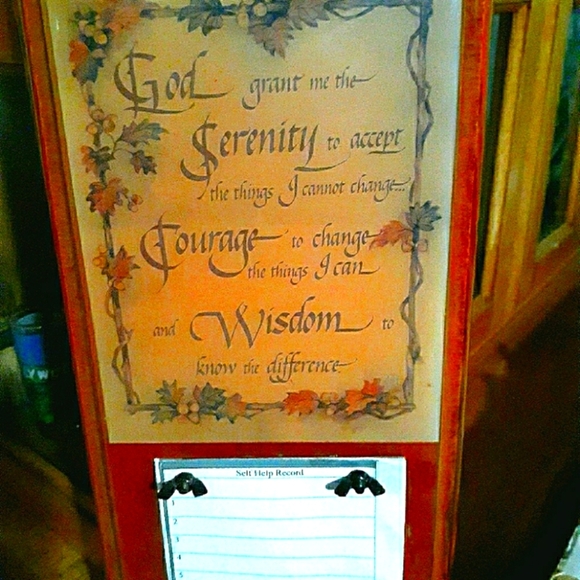 God grant me the
Serenity to accept
the things I cannot change...
Courage to change
the things I can
and Wisdom to
know the difference
Self Help Record
1
2
3
4
5